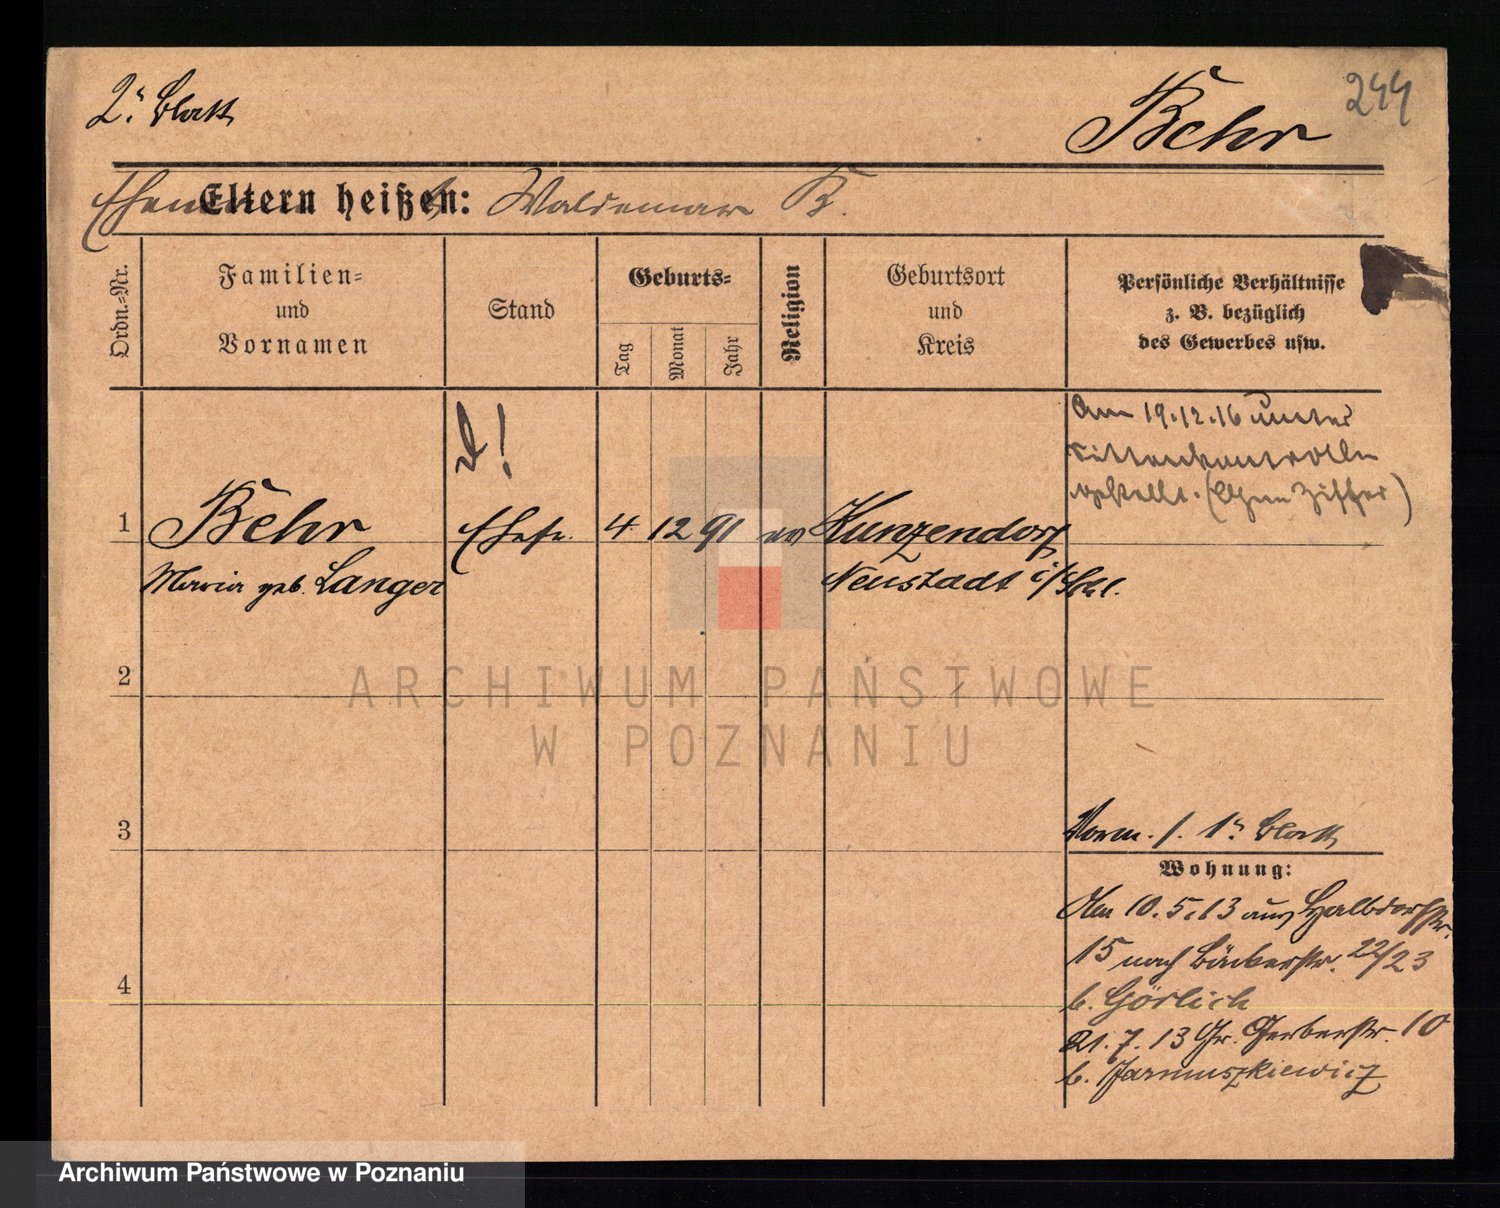 2tes Blatt
Behr
244
Ehemann Eltern heißen: Waldemar B.
Ordn.=Nr.
Familien=
und
Vornamen
Stand
Geburts=
Tag
Monat
Jahr
Religion
Geburtsort
und
Kreis
Persönliche Verhältnisse
z. B. bezüglich
des Gewerbes usw.
Am 19.12.16 unter
Sittenkontrolle
gestellt. (Ohne Ziffer)
1
Behr
Maria geb. Langer
Ehefr.
4 12 91
ev
Kunzendorf
Neustadt i/Schl.
2
3
4
Vorm. s. 1tes Blatt
Wohnung:
Am 10.5.13 aus Halbdorfstr.
15 nach Bäckerstr. 22/23
b. Görlich
21.7.13 Gr. Gerberstr. 10
b. Jarmuszkiewicz
ARCHIWUM PAŃSTWOWE
W POZNANIU
Archiwum Państwowe w Poznaniu